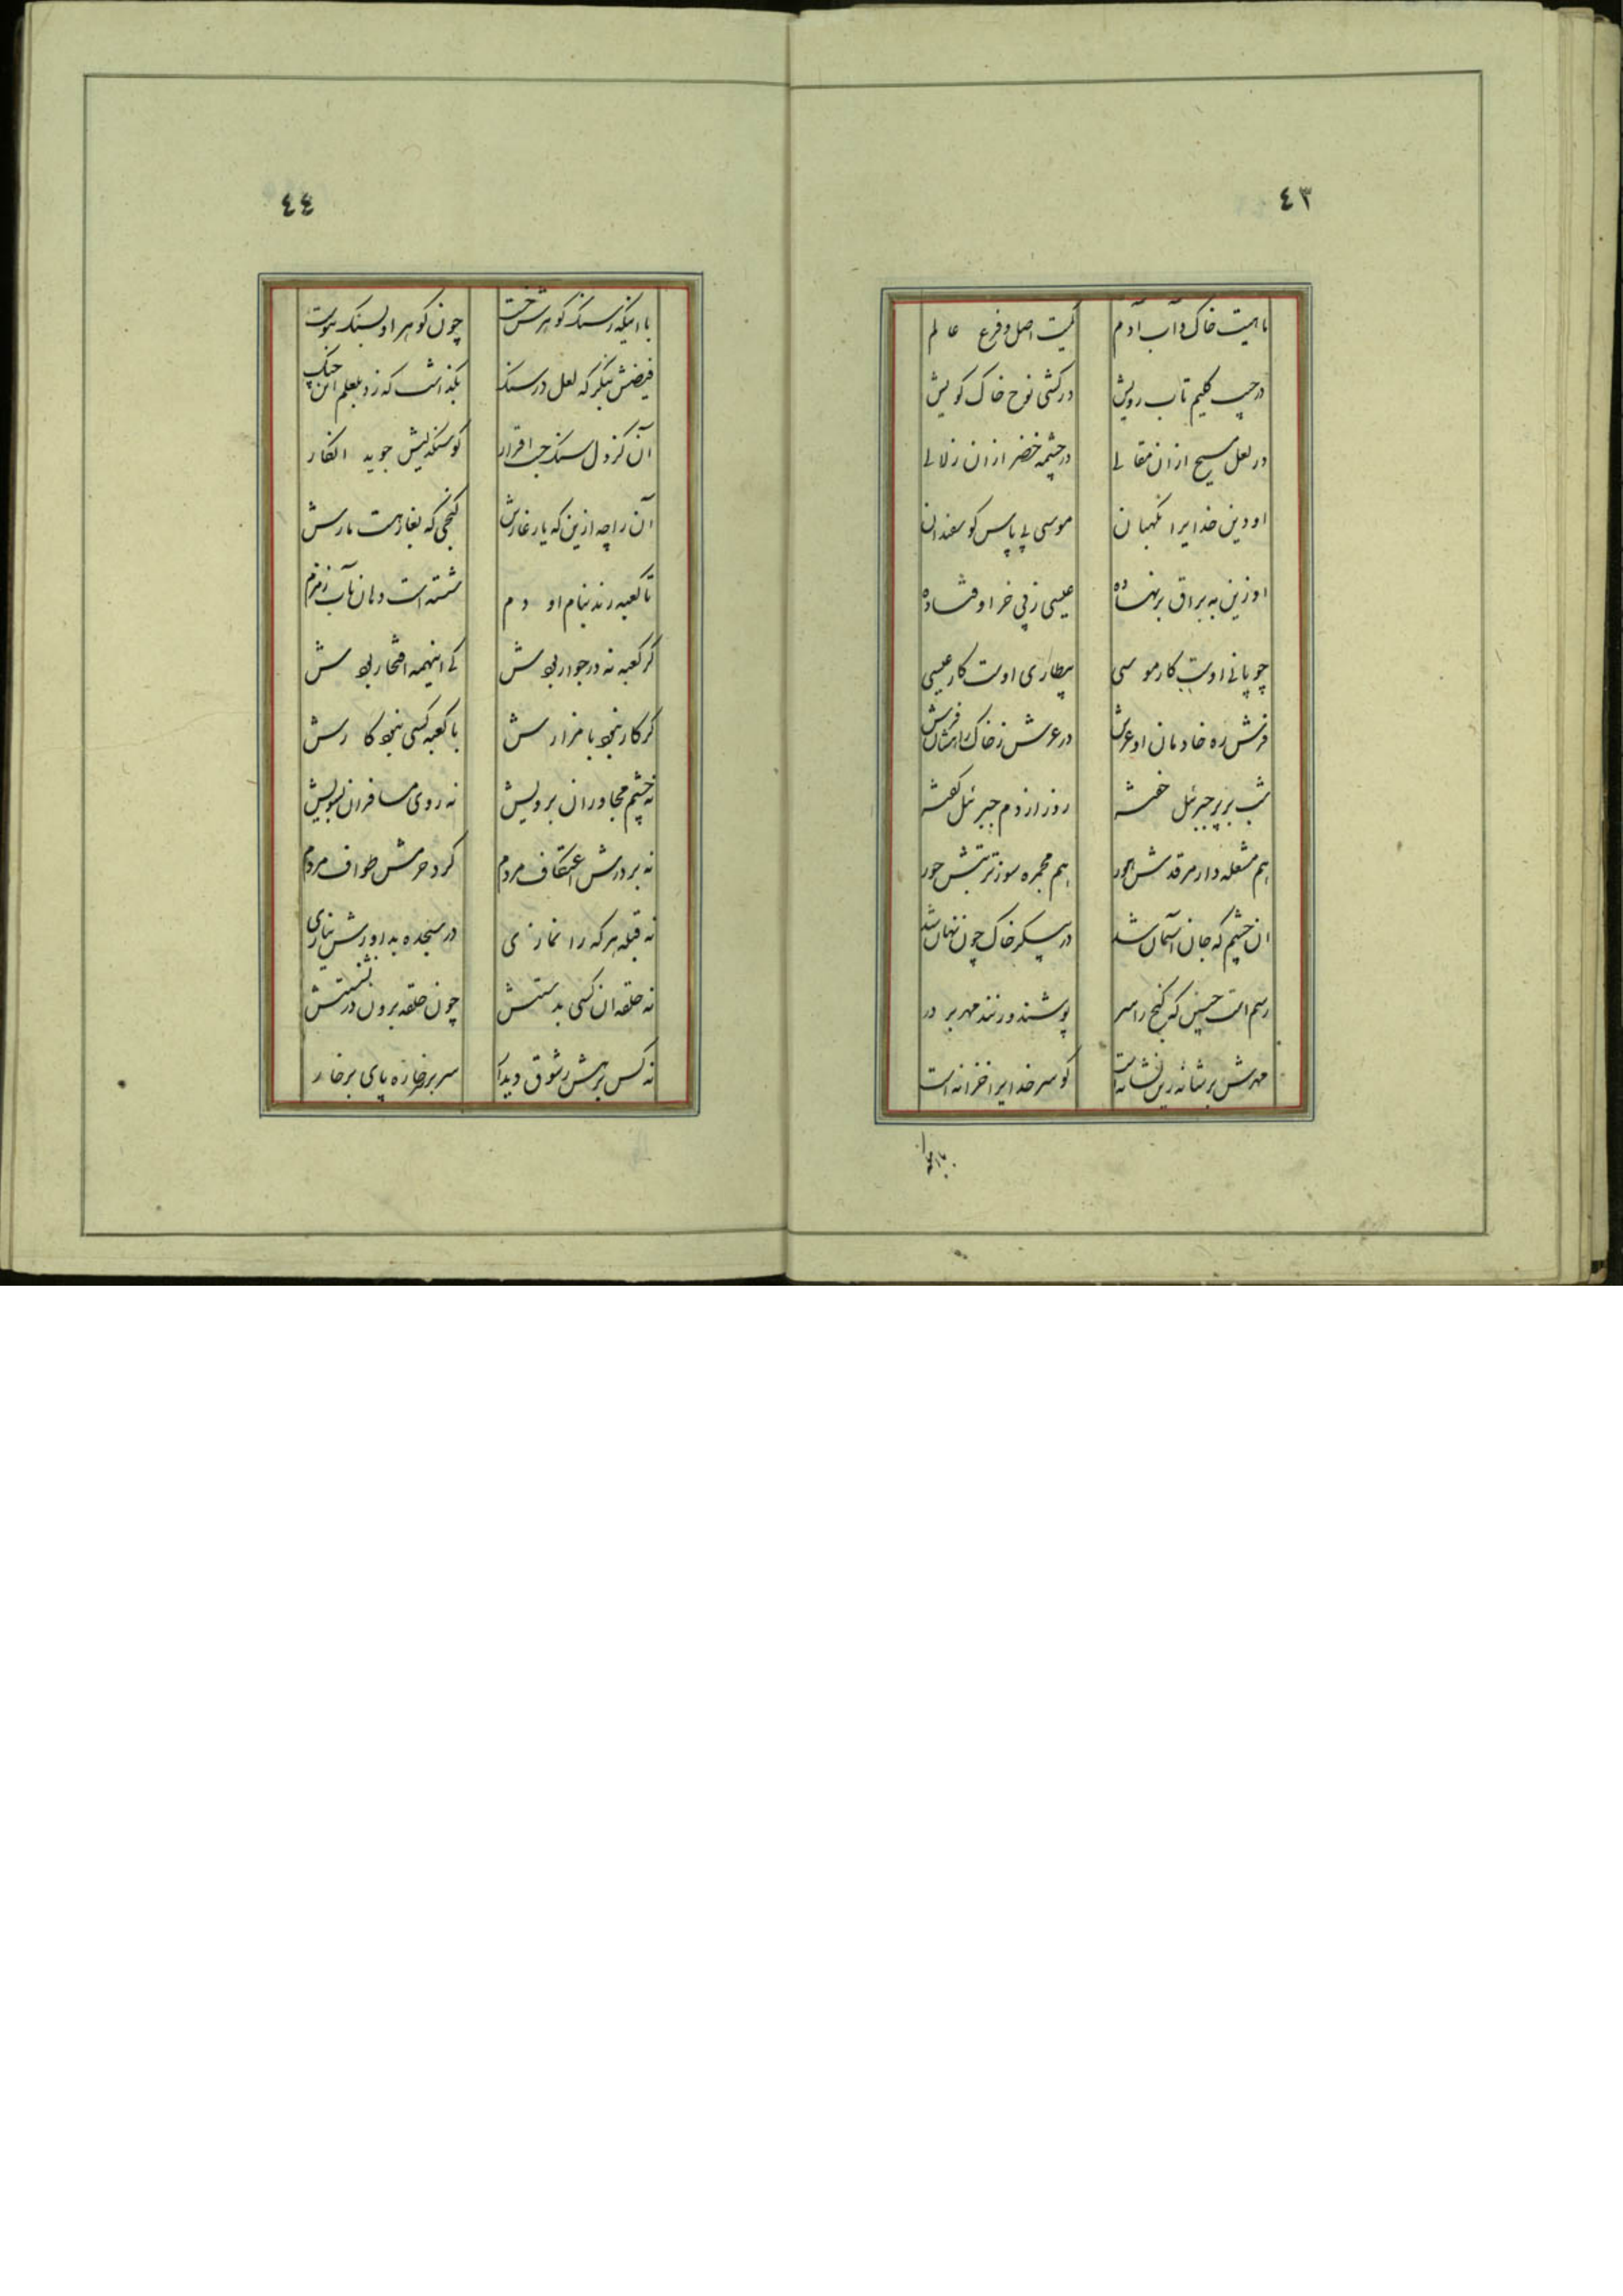 ٤٣
ماهیت خاک و آب آدم کمیت اصل و فرع عالم
در جیب کلیم تاب رویش در کشتی نوح خاک کویش
در لعل مسیح ازان مقالی در چشمه خضر ازان زلالی
او دین خدایرا نگهبان موسی پی پاس کوسفندان
او زین به براق برنهاده عیسی ز پی خر اوفتاده
چوپانی اوست کار موسی بیطاری اوست کار عیسی
فرش ره خادمان او عرش در عرش ز خاک راهشان فرش
شب بر پر جبرئیل خفته روز از دم جبرئیل کفته
هم مشعله دار مرقدش هور هم مجمره سوز تربتش حور
ان چشم که جان آسمان شد در پیکر خاک چون نهان شد
رسم است چنین که کنج را سر پوشند و زنند مهر بر در
مهرش بر شانه زین نشانه است کو سر خدایرا خزانه است
با اینکه
٤٤
با اینکه ز سنک کوهرش خست چون کوهر او بسنک پیوست
فیضش بنکر که لعل در سنک بکذاشت که زد بلعلم این چنک
آن کز دل سنک جست اقرار کو سنکدلیش جوید انکار
آن را چه ازین که یار غارش کنجی که بغار هست مارش
تا کعبه زند بنام او دم شسته است دهان بآب زمزم
کر کعبه نه در جوار بودش کی اینهمه افتخار بودش
کر کار نبود با مزارش با کعبه کسی نبود کارش
نه چشم مجاوران برویش نه روی مسافران بسویش
نه بر درش اعتکاف مردم کرد حرمش طواف مردم
نه قبله هر که را نمازی در سجده بداورش نیازی
نه حلقه ان کسی بدستش چون حلقه برون در نشستش
نه کس برهش ز شوق دیدار سر بر خاره پای بر خار